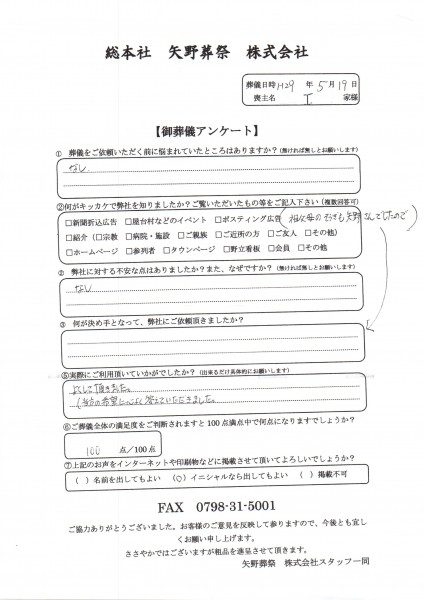 総本社 矢野葬祭 株式会社
葬儀日時 H29 年 5月 19日
喪主名 I 家様
【御葬儀アンケート】
① 葬儀をご依頼いただく前に悩まれていたところはありますか？(無ければ無しとお願いします)
なし
②何がキッカケで弊社を知りましたか？ご覧いただいたもの等をご記入下さい（複数回答可）
□新聞折込広告 □屋台村などのイベント □ポスティング広告 (祖父母の時も矢野さんでしたので)
□紹介（□宗教 □病院・施設 □ご親族 □ご近所の方 □ご友人 □その他）
□ホームページ □参列者 □タウンページ □野立看板 □会員 □その他）
② 弊社に対する不安な点はありましたか？また、なぜですか？(無ければ無しとお願いします)
なし
③ 何が決め手となって、弊社にご依頼頂きましたか？
⑤実際にご利用頂いていかがでしたか？(出来るだけ具体的にお願いします)
よくして頂きました。
答えていただきました。
⑥ご葬儀全体の満足度をご判断されますと100点満点中で何点になりますでしょうか？
100 点/100点
⑦上記のお声をインターネットや印刷物などに掲載させて頂いてよろしいでしょうか？
（ ）名前を出してもよい （○）イニシャルなら出してもよい （ ）掲載不可
FAX 0798-31-5001
ご協力ありがとうございました。お客様のご意見を反映して参りますので、今後とも宜し
くお願い申し上げます。
ささやかではございますが粗品を進呈させて頂きます。
矢野葬祭 株式会社スタッフ一同